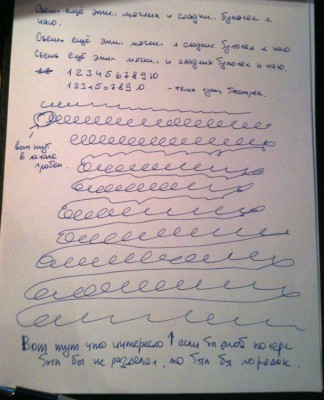 Съешь ещё этих мягких и сладких булочек с
чаю.
Съешь ещё этих мягких и сладких булочек с чаю
Съешь ещё этих мягких и сладких булочек с чаю.
1 2 3 4 5 6 7 8 9 10
1 2 3 4 5 6 7 8 9 0 - чуть быстрее.
вот тут
в начале
Вот тут что интересно ↑ если бы
был бы не разделен, но был бы порядок.